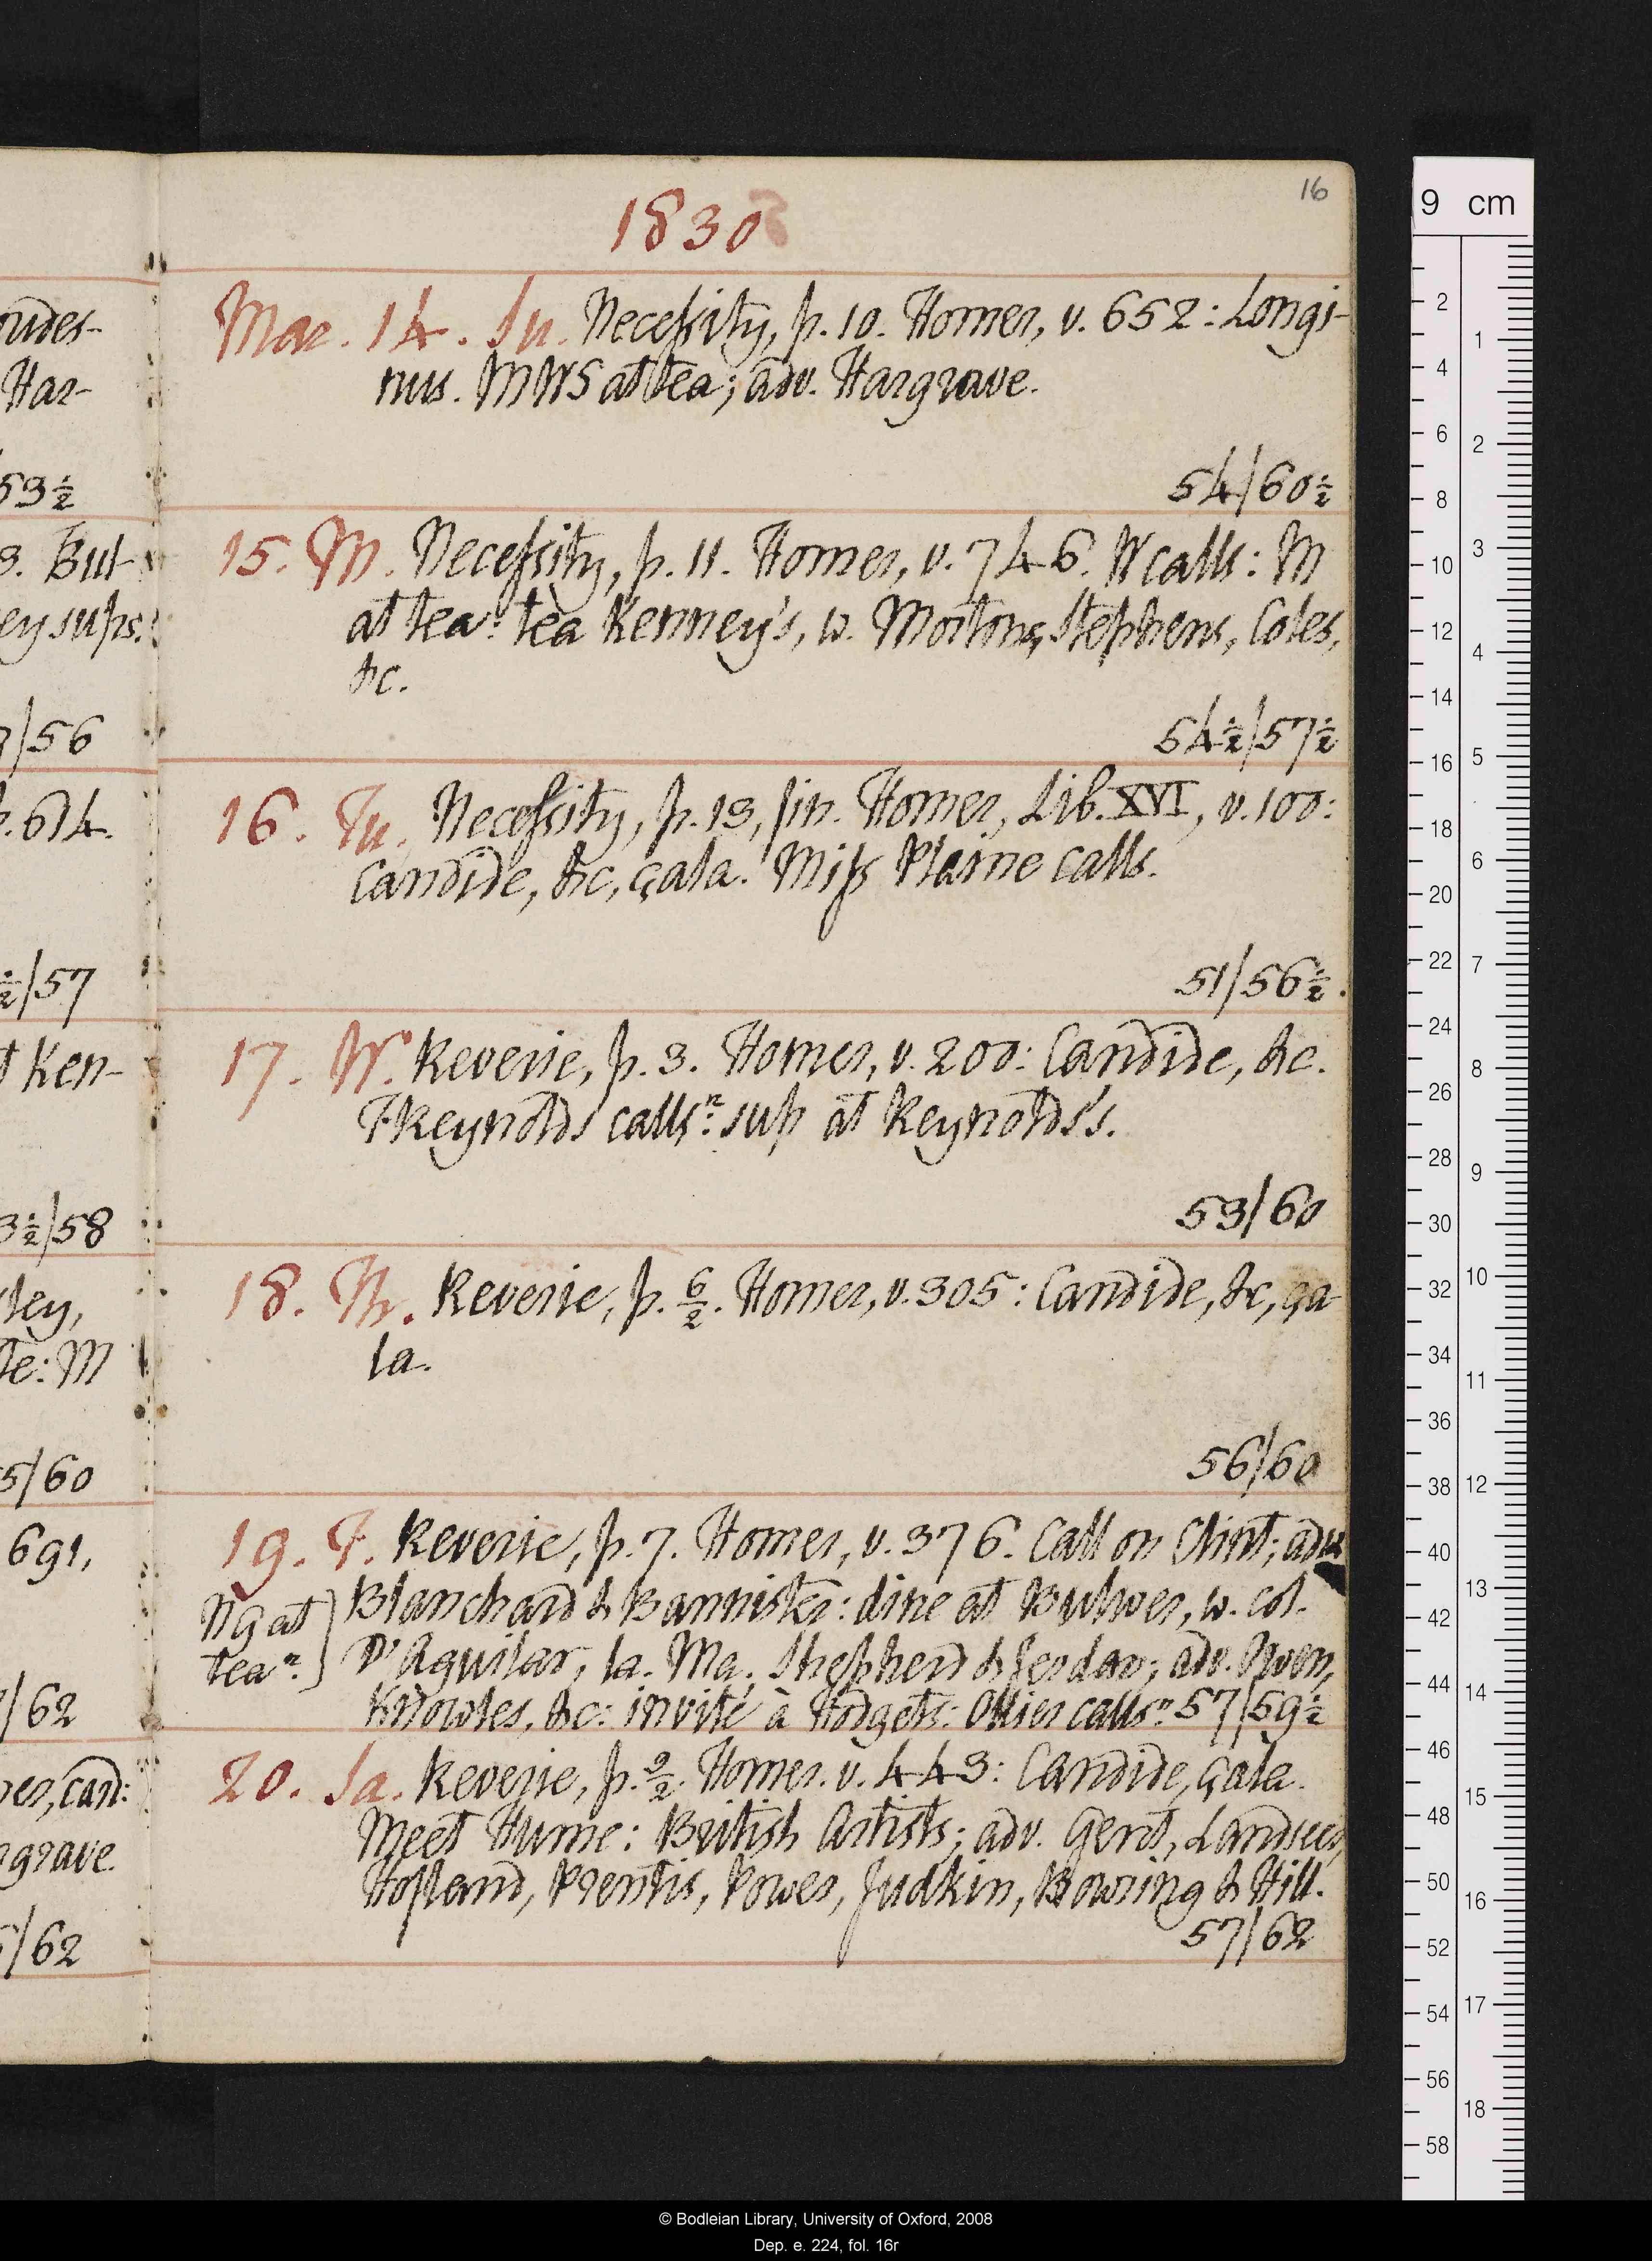 16
1830
Mar. 14. Su. Necessity, p. 10. Homer, v. 652: Longi-
nus. MWS at tea; adv. Hargrave.
54/60½
15. M. Necessity, p. 11. Homer, v. 746. W calls: M
at teaⁿ: tea Kenney's, w. Mortons, Stephens, Coles,
&c.
54½/57½
16. Tu. Necessity, p. 13, fin. Homer, Lib. XVI, v. 100:
Candide, &c, çala. Miss Plaine calls.
51/56½.
17. W. Reverie, p. 3. Homer, v. 200: Candide, &c.
F Reynolds callsⁿ: sup at Reynolds's.
53/60
18. Th. Reverie, p. 6/2. Homer, v. 305: Candide, &c, ça-
la.
56/60
19. F. Reverie, p. 7. Homer, v. 376. Call on Clint; adv.
Ng at
teaⁿ.
Blanchard & Bannister: dine at Bulwer, w. col.
D'Aguilar, la. Ma. Shepherd & Jerdan; adv. Owen,
Knowles, &c: invité à Hodgets: Ollier callsⁿ. 57/59½
20. Sa. Reverie, p. 9/2. Homer. v. 443: Candide, çala.
Meet Hume: British Artists; adv. Gent, Landseer,
Hofland, Prentis, Power, Judkin, Bowring & Hill.
57/62
udes-
Har-
53½
3. Bul-
ey sups.
/56
p. 614.
½/57
t Ken-
3½/58
ley,
te: M
5/60
691,
/62
er, can:
rgrave.
/62
9 cm
2
4
6
8
10
12
14
16
18
20
22
24
26
28
30
32
34
36
38
40
42
44
46
48
50
52
54
56
58
1
2
3
4
5
6
7
8
9
10
11
12
13
14
15
16
17
18
© Bodleian Library, University of Oxford, 2008
Dep. e. 224, fol. 16r